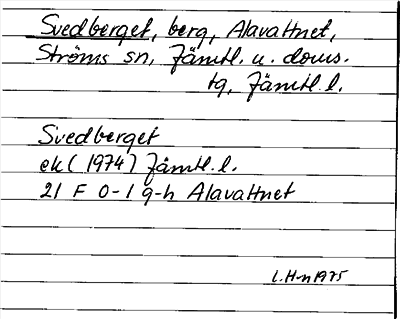 Svedberget, berg, Alavattnet,
Ströms sn, Jämtl. n. doms.
tg, Jämtl. l.
Svedberget
ek (1974) Jämtl. l.
21 F 0-1 g-h Alavattnet
L.H-n 1975